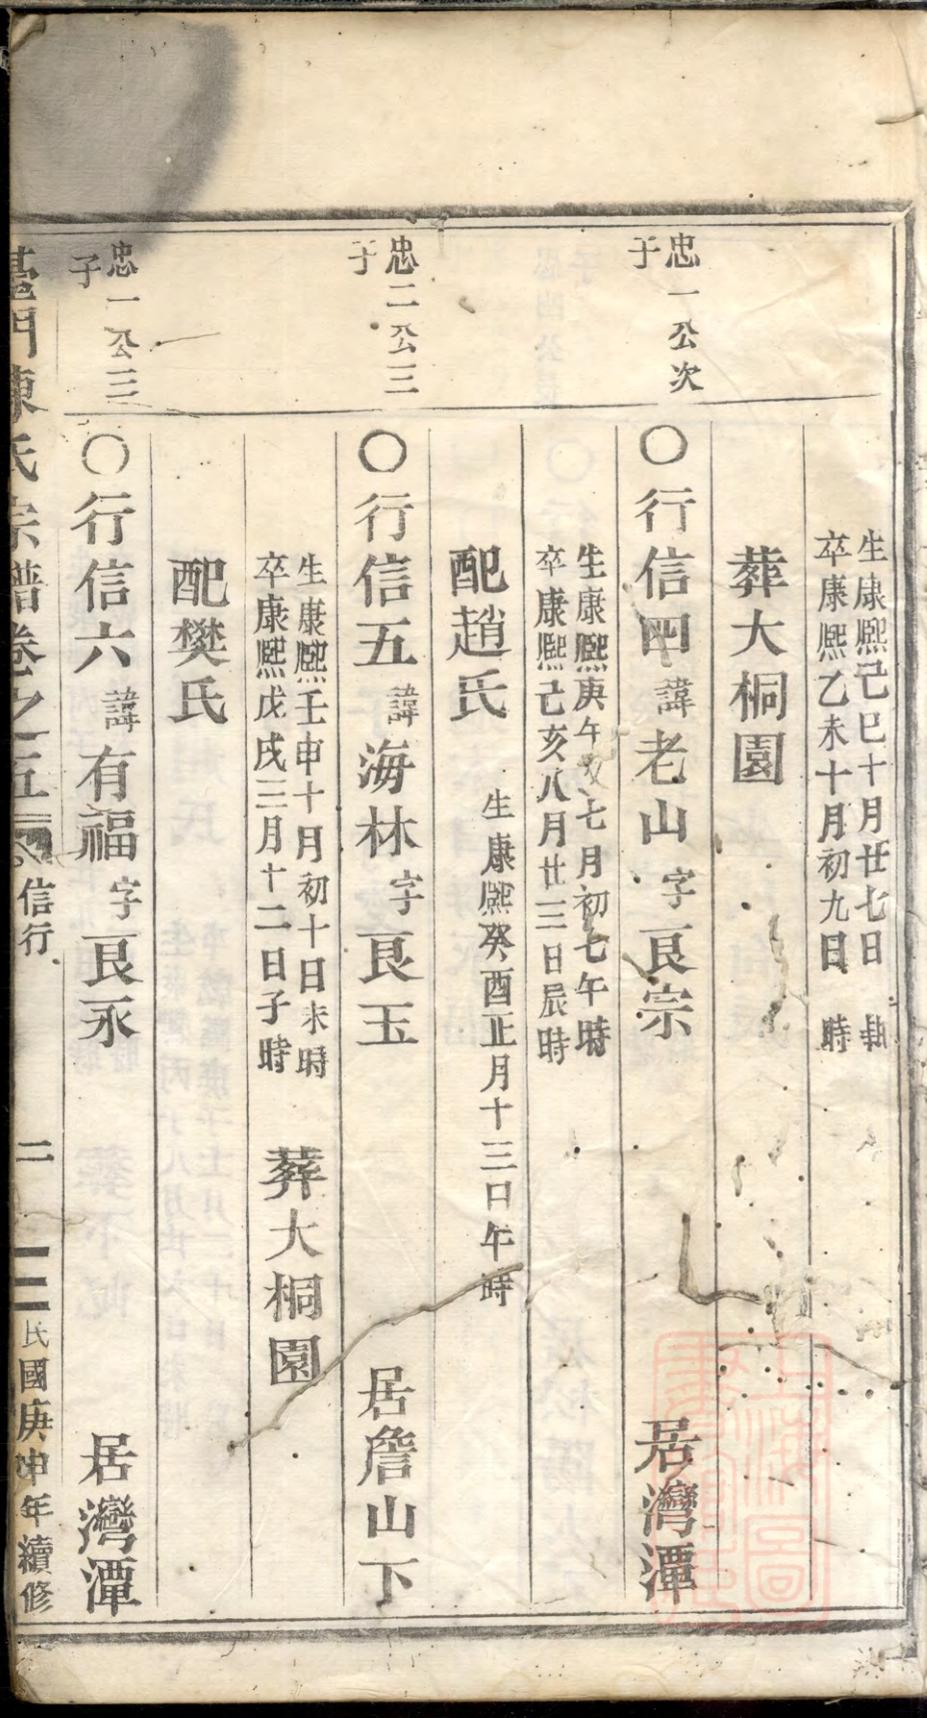 生康熙己巳十月廿七日
卒康熙乙未十月初九日 時
葬大桐園
忠一公次
子
〇行信四諱老山字良宗 居灣潭
生康熙庚午七月初七午時
卒康熙己亥八月廿三日辰時
配趙氏 生康熙癸酉正月十三日午時
忠二公三
子
〇行信五諱海林字良玉 居詹山下
生康熙壬申十月初十日未時
卒康熙戊戌三月十二日子時 葬大桐園
配樊氏
忠一公三
子
〇行信六諱有福字良永 居灣潭
陳氏宗譜卷之五 信行 二 民國庚申年續修